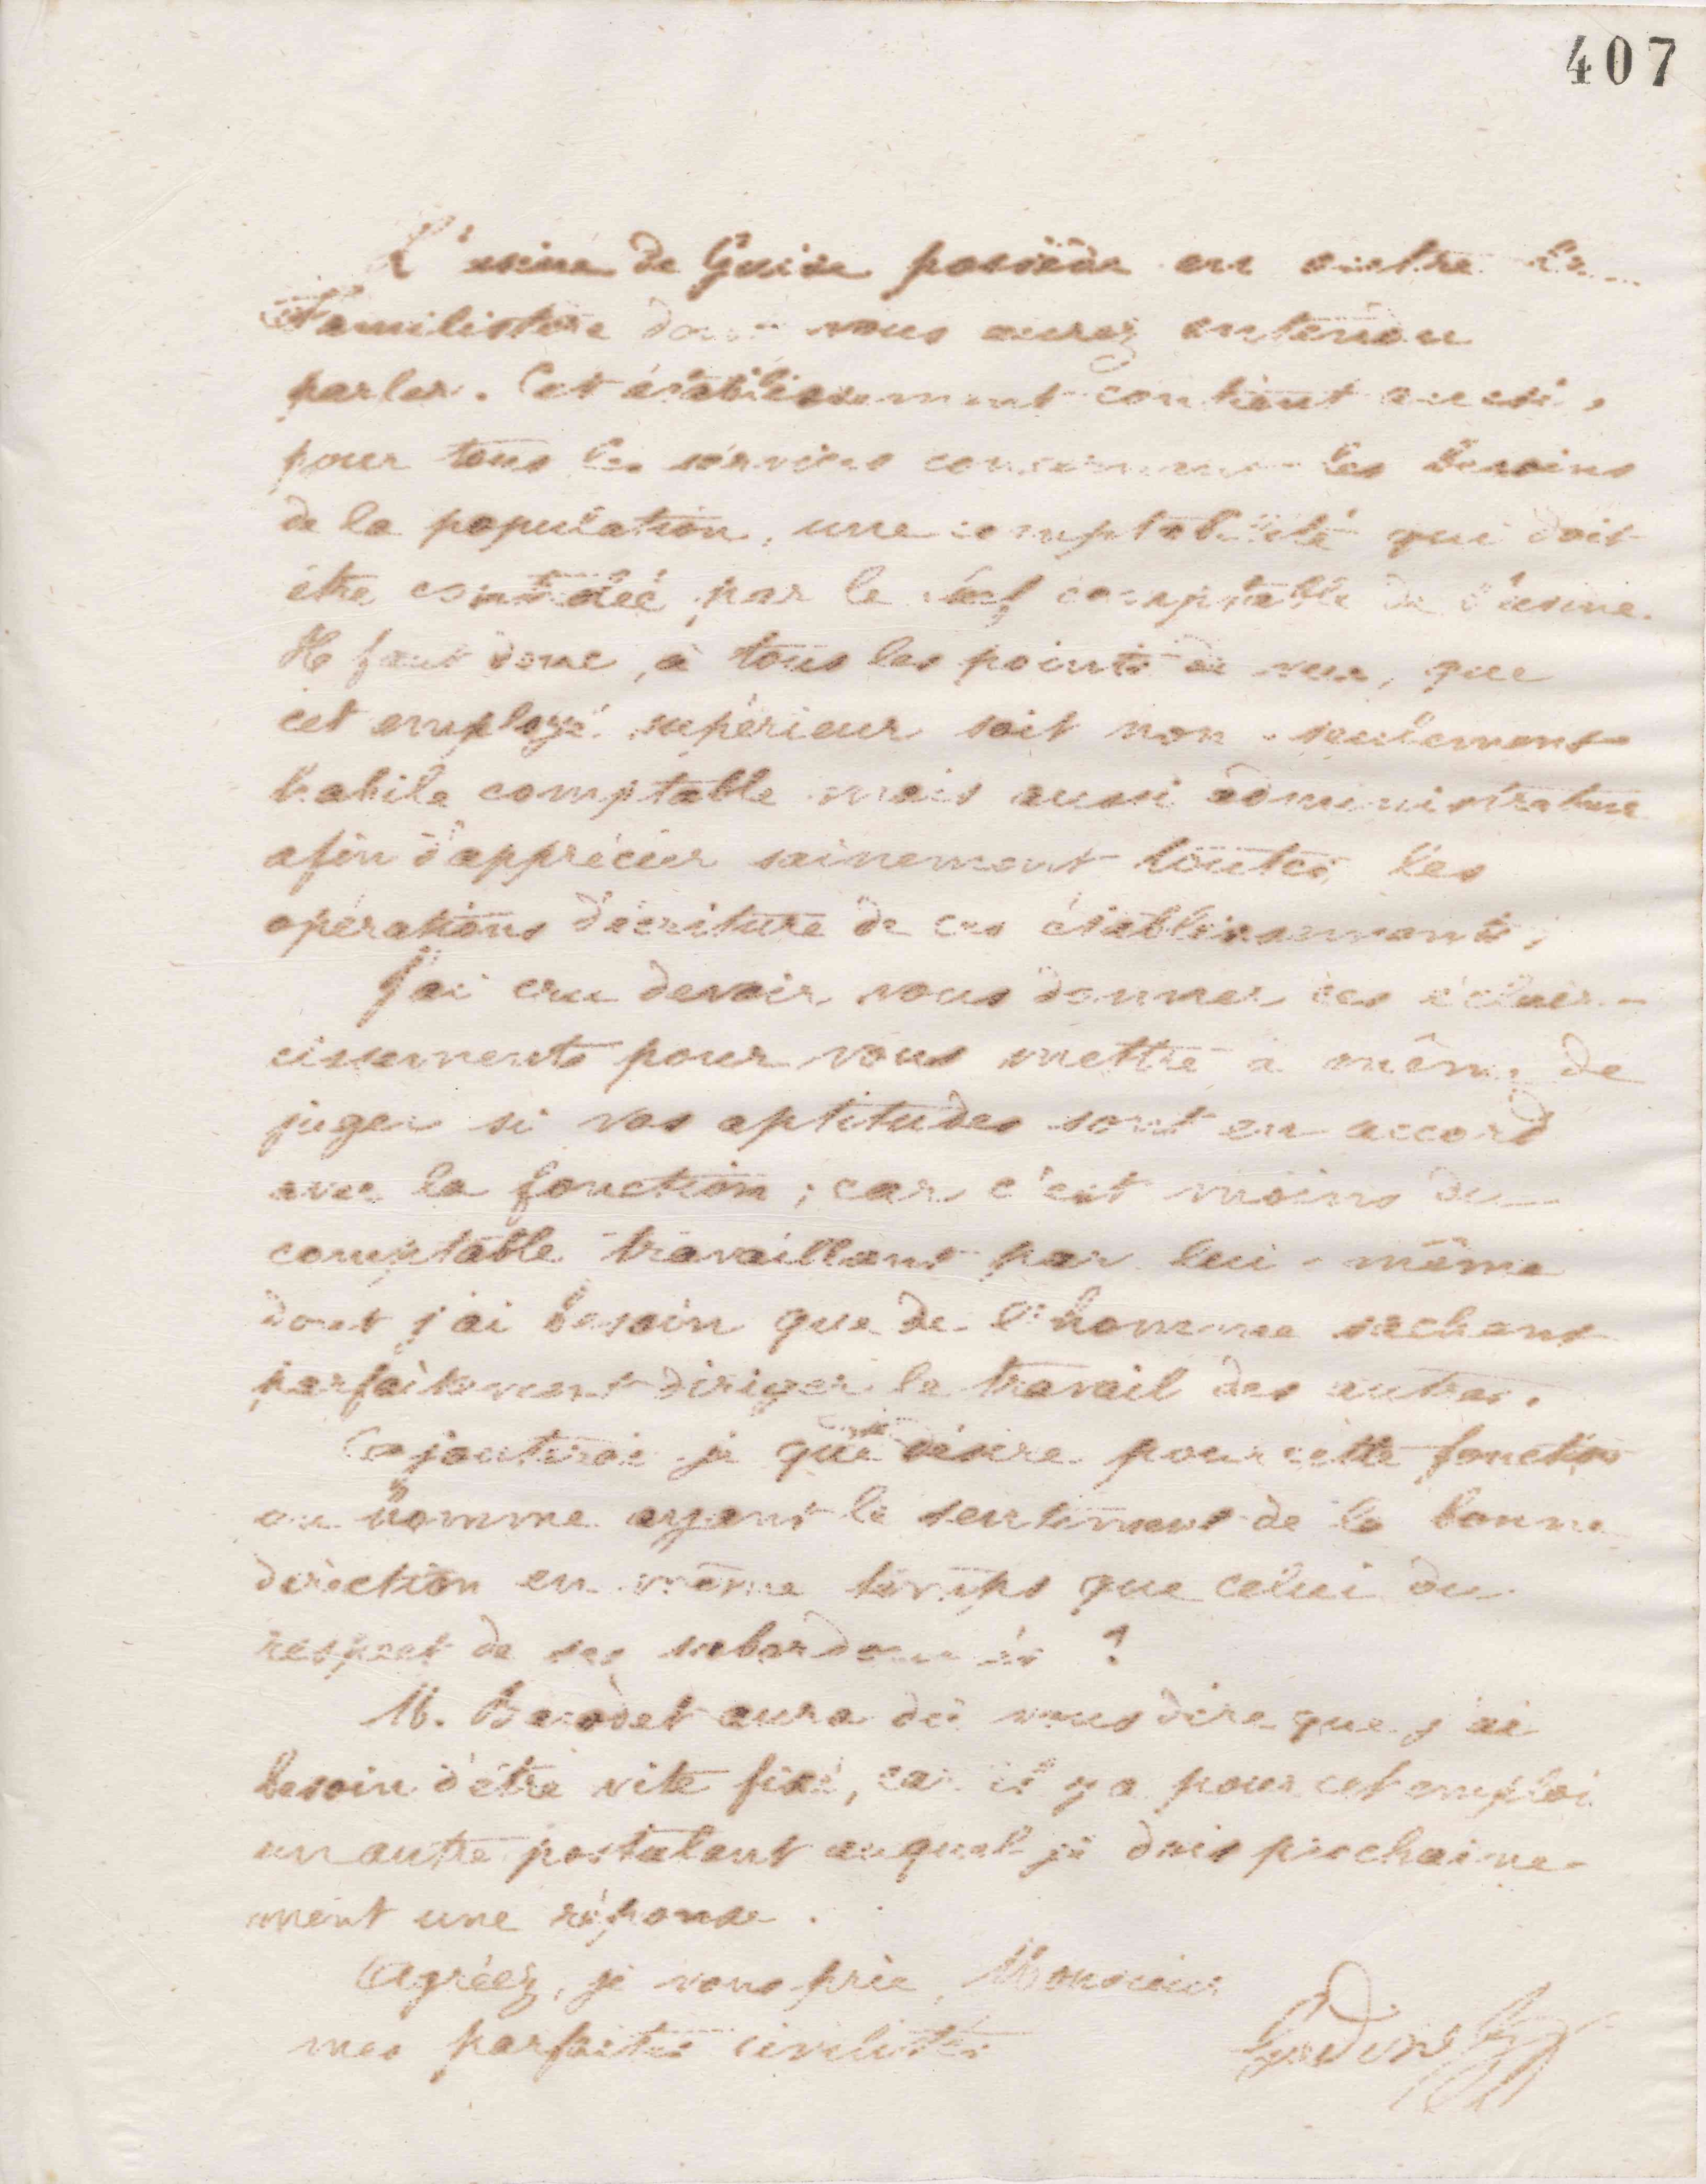 407
L'usine de Guise possède en outre le
Familistère dont vous aurez entendu
parler. Cet établissement contient aussi,
pour tous les services concernant les besoins
de la population, une comptabilité qui doit
être contrôlée par le chef comptable de l'usine.
Il faut donc, à tous les points de vue, que
cet employé supérieur soit non-seulement
habile comptable mais aussi administrateur
afin d'apprécier sainement toutes les
opérations d'écriture de ces établissements.
J'ai cru devoir vous donner ces éclair-
cissements pour vous mettre à même de
juger si vos aptitudes sont en accord
avec la fonction ; car c'est moins du
comptable travaillant par lui-même
dont j'ai besoin que de l'homme sachant
parfaitement diriger le travail des autres.
Ajouterai-je que je désire pour cette fonction
un homme ayant le sentiment de la bonne
direction en même temps que celui du
respect de ses subordonnés ?
M. Barodet aura dû vous dire que j'ai
besoin d'être vite fixé, car il y a pour cet emploi
un autre postulant auquel je dois prochaine-
ment une réponse.
Agréez, je vous prie, Monsieur
mes parfaites civilités
Godin